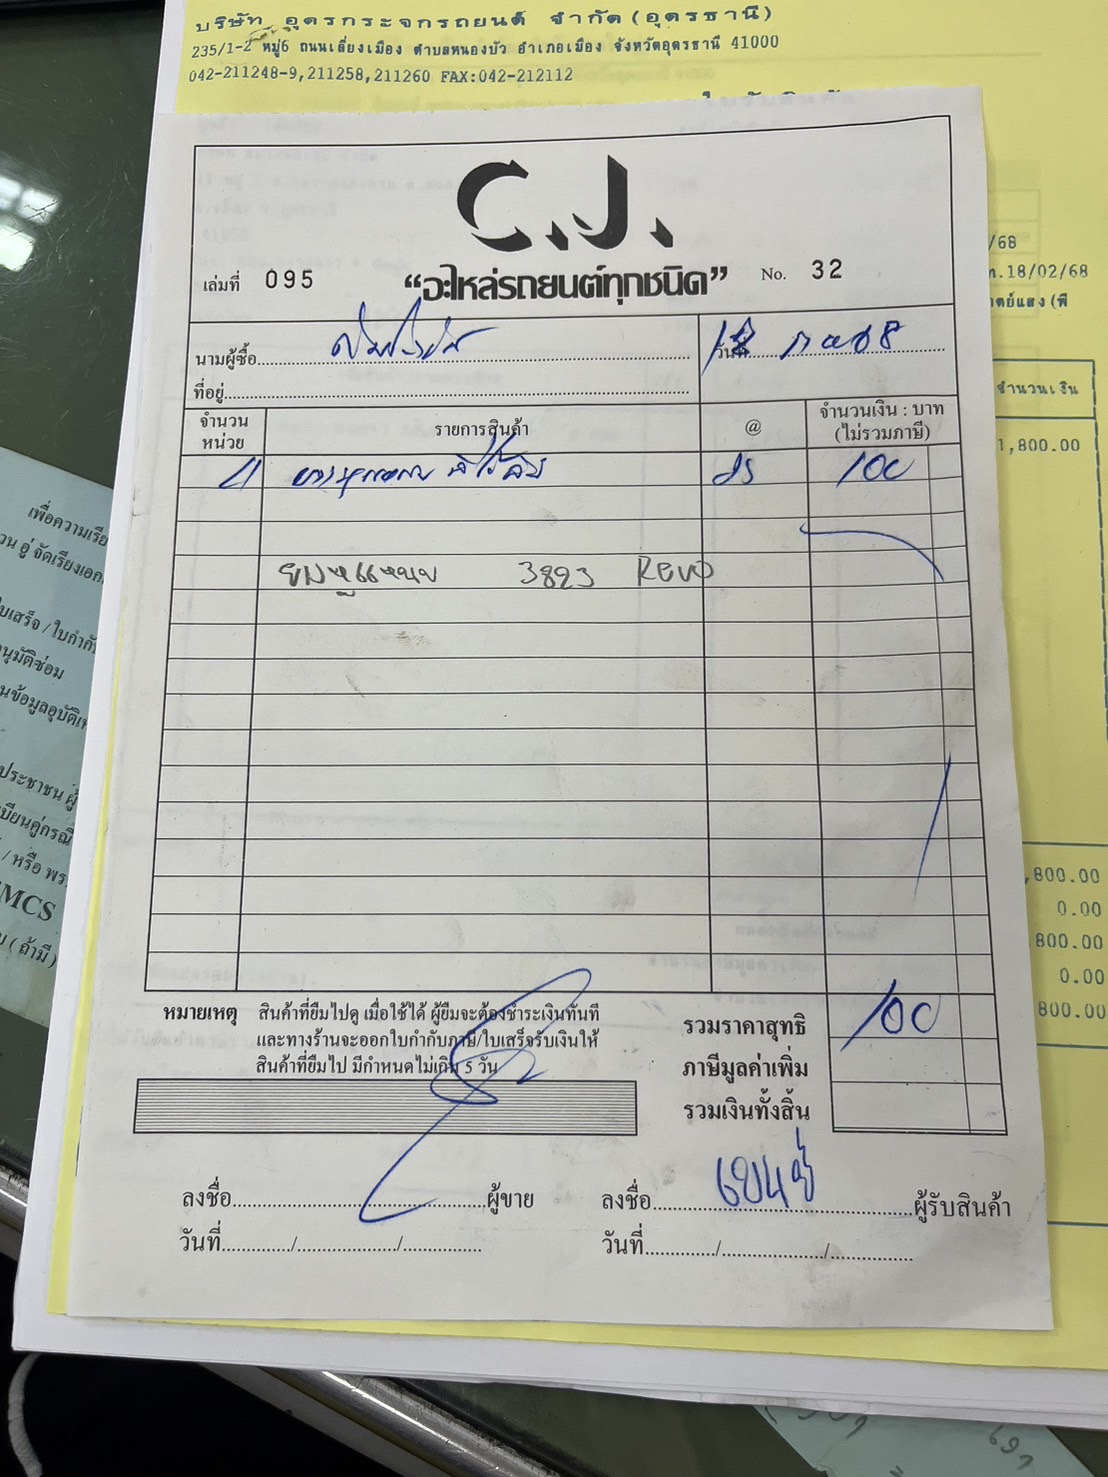 บริษัท อุดรกระจกรถยนต์ จำกัด(อุดรธานี)
235/1-2 หมู่6 ถนนเลี่ยงเมือง ตำบลหนองบัว อำเภอเมือง จังหวัดอุดรธานี 41000
042-211248-9,211258,211260 FAX:042-212112
C.J.
"อะไหล่รถยนต์ทุกชนิด"
เล่มที่ 095
No. 32
/68
.18/02/68
นามผู้ซื้อ
วันที่
ที่อยู่
จำนวน
หน่วย
รายการสินค้า
@
จำนวนเงิน : บาท
(ไม่รวมภาษี)
จำนวนเงิน
1,800.00
4
100
ยางหูแหนบ 3823 Revo
เพื่อความเรีย
วน อู่ จัดเรียงเอก
ใบเสร็จ / ใบกำกับ
นุมัติซ่อม
นข้อมูลอุบัติเห
ประชาชน ผู้
เบียนคู่กรณี
/ หรือ พร
MCS
(ถ้ามี)
,800.00
0.00
800.00
0.00
800.00
หมายเหตุ สินค้าที่ยืมไปดู เมื่อใช้ได้ ผู้ยืมจะต้องชำระเงินทันที
และทางร้านจะออกใบกำกับภาษี/ใบเสร็จรับเงินให้
สินค้าที่ยืมไป มีกำหนดไม่เกิน 5 วัน
รวมราคาสุทธิ 100
ภาษีมูลค่าเพิ่ม
รวมเงินทั้งสิ้น
ลงชื่อ ผู้ขาย
ลงชื่อ ผู้รับสินค้า
วันที่ / /
วันที่ / /